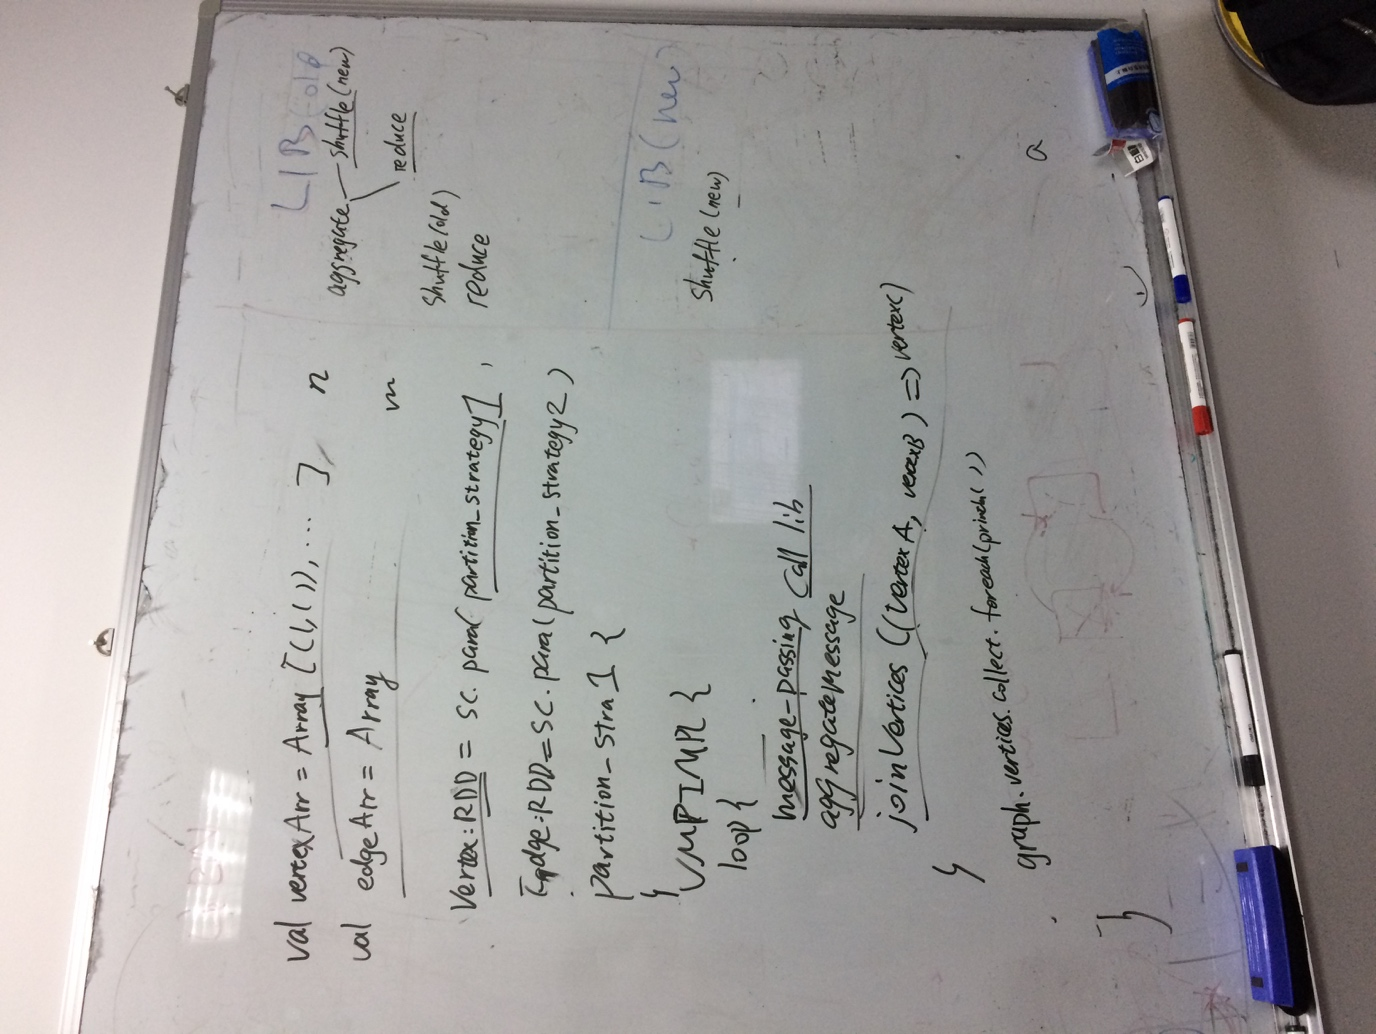 val vertexArr = Array [(1,()), ... ] n
val edgeArr = Array m
Vertex:RDD = sc.para(partition_strategy1,
Edge:RDD=sc.para(partition_strategy2)
partition_stra1 {
}
VMPIMPL {
loop{
message-passing call lib
aggregatemessage
joinVertices ((Vertex A, vertexB) => vertex()
}
graph.vertices.collect.foreach(println())
}
LIB old
aggregate shuttle(new)
reduce
shuttle(old)
reduce
LIB (new)
shuttle(new)
a